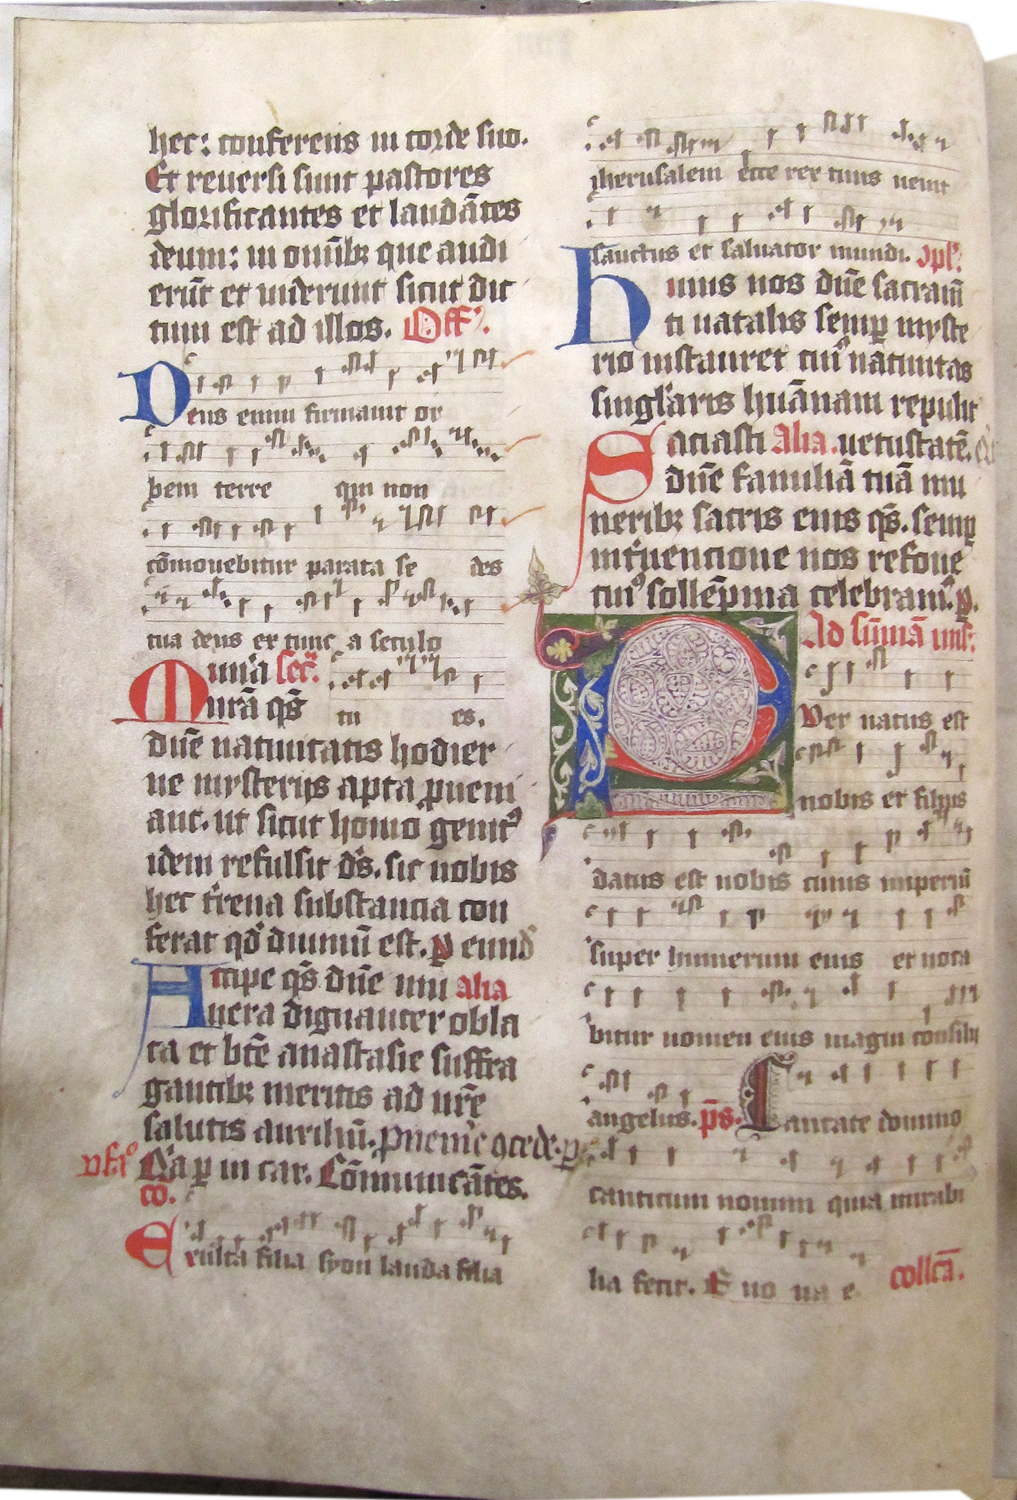 hec: conferens in corde suo.
Et reuersi sunt pastores
glorificantes et laudātes
deum: in omībꝫ que audi
erūt et uiderunt sicut dic
tum est ad illos. Off.
Deus enim firmauit or
bem terre qui non
cōmouebitur parata se des
tua deus ex tunc a seculo
Mun̄a Secr̄.
nr̄a qs̄ tu es.
dn̄e natiuitatis hodier
ne mysterijs apta ꝓueni
ant. ut sicut homo genitꝰ
idem refulsit ds̄. sic nobis
hec t̄rena substancia con
ferat qd̄ diuinū est. p eund̄
Accipe qs̄ dn̄e mu alia
nera dignanter obla
ta et btē anastasie suffra
gantibꝫ meritis ad nr̄e
salutis auxiliū. ꝓuenir̄e ꝯcede. p
Q̄a p in car. Cōmunicātes.
co.
Exulta filia syon lauda filia
iherusalem ecce rex tuus uenit
sanctus et saluator mundi. ꝯpl̄.
huius nos dn̄e sacram̄
ti natalis semp myste
rio instauret cuiꝰ natiuitas
singl̄aris hūanam repulit
Saciasti Alia. uetustatē.
dn̄e familiā tuā mu
neribꝫ sacris eius qs̄. semp
int̄uencione nos refoue
cuiꝰ sollēpnia celebram̄. p.
Ad sūmā mis̄.
Puer natus est
nobis et filius
datus est nobis cuius imperiū
super humerum eius et uoca
bitur nomen eius magni consilij
angelus. ps̄. Cantate domino
canticum nouum quia mirabi
lia fecit. E uo ua e collcā.